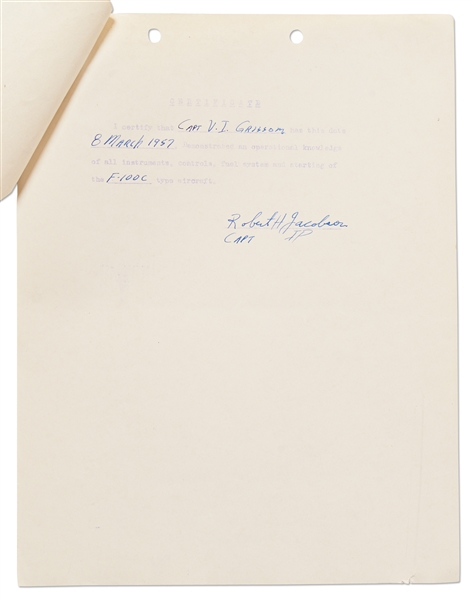 CERTIFICATE
I certify that CAPT V.I. GRISSOM has this date
8 MARCH 1957 demonstrated an operational knowledge
of all instruments, controls, fuel system and starting of
the F-100C type aircraft.
Robert H Jacobson
CAPT IP